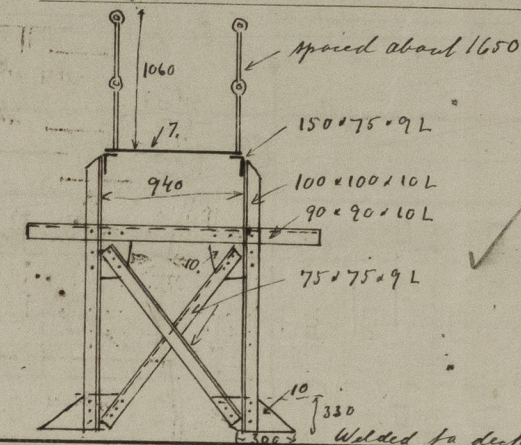 spaced about 1650
1060
7.
150 x 75 x 9 L
940
100 x 100 x 10 L
90 x 90 x 10 L
10
75 x 75 x 9 L
10
330
300
Welded to deck